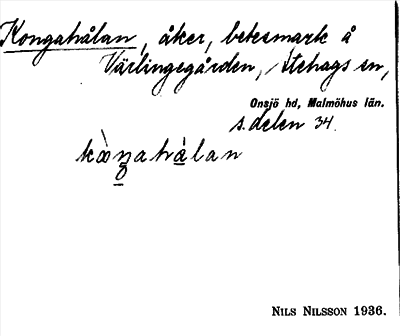 Kongahålan, åker, betesmark å
Värlingegården, Stehags sn,
Onsjö hd, Malmöhus län.
s. delen 34.
kòŋahàlan
NILS NILSSON 1936.